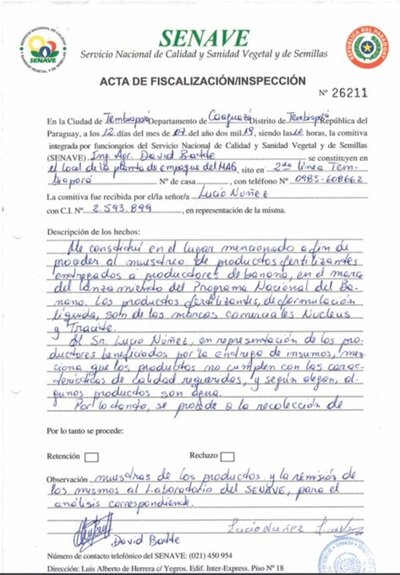 SENAVE
Servicio Nacional de Calidad y Sanidad Vegetal y de Semillas
SENAVE
ACTA DE FISCALIZACIÓN/INSPECCIÓN
Nº 26211
En la Ciudad de Tembiaporá Departamento de Caaguazú Distrito de Tembiaporá República del
Paraguay, a los 12 días del mes de 07 del año dos mil 19, siendo las 10 horas, la comitiva
integrada por funcionarios del Servicio Nacional de Calidad y Sanidad Vegetal y de Semillas
(SENAVE) Ing. Agr. David Bottle se constituyen en
el local de la planta de empaque del MAG, sito en 2da línea Tem-
biaporá Nº de casa , con teléfono Nº 0985-608662
La comitiva fue recibida por el/la señor/a Lucio Nuñez
con C.I. Nº 2.593.899, en representación de la misma.
Descripción de los hechos:
Me constituí en el lugar mencionado a fin de
proceder al muestreo de productos fertilizantes
entregados a productores de banana, en el marco
del lanzamiento del Programa Nacional del Ba-
nano. Los productos fertilizantes, de formulación
líquida, son de las marcas comerciales Nucleus
y Tracite.
El Sr. Lucio Núñez, en representación de los pro-
ductores beneficiados por la entrega de insumos, men-
ciona que los productos no cumplen con las carac-
terísticas de calidad requeridas, y según alegan, al-
gunos productos son agua.
Por lo tanto, se procede a la recolección de
Por lo tanto se procede:
Retención Rechazo
Observación muestras de los productos y la remisión de
los mismos al Laboratorio del SENAVE, para el
análisis correspondiente.
David Bottle
Lucio Nuñez
Número de contacto telefónico del SENAVE: (021) 450 954
Dirección: Luis Alberto de Herrera c/ Yegros. Edif. Inter-Express. Piso Nº 18